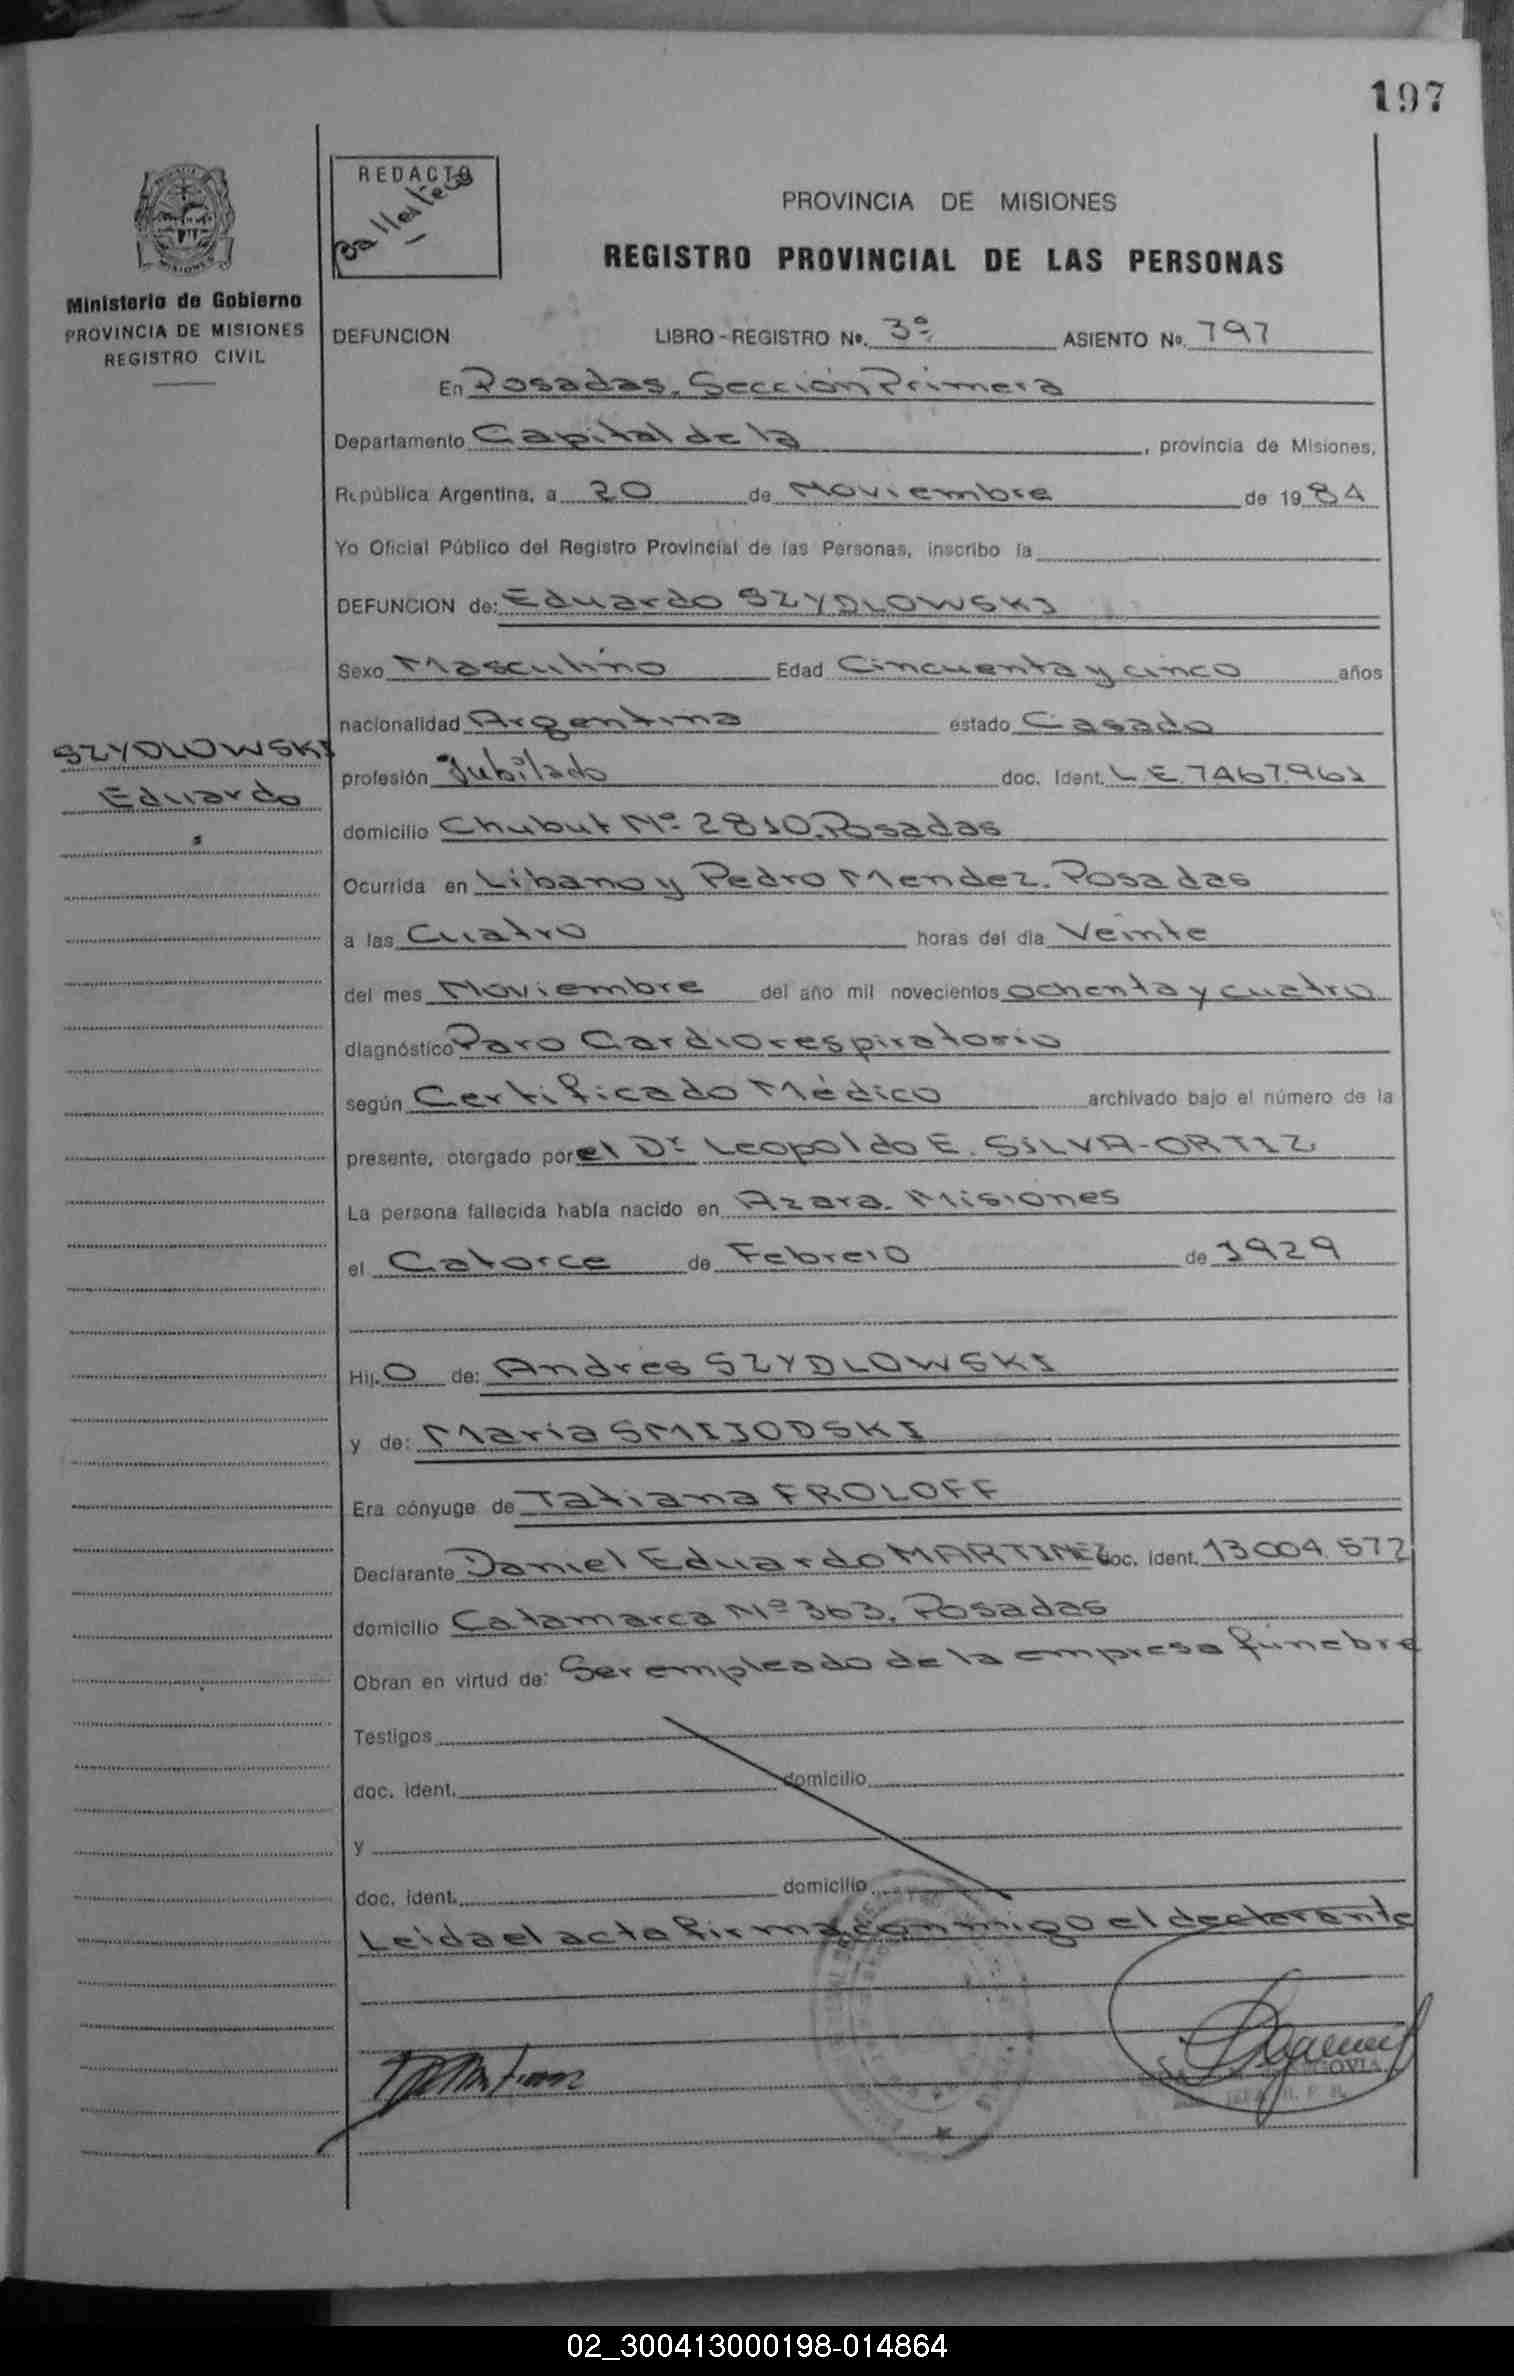 197
REDACTO
Ballesteros
PROVINCIA DE MISIONES
REGISTRO PROVINCIAL DE LAS PERSONAS
MISIONES
Ministerio de Gobierno
PROVINCIA DE MISIONES
REGISTRO CIVIL
DEFUNCION LIBRO-REGISTRO Nº. 3º ASIENTO Nº. 797
En Posadas, Sección Primera
Departamento Capital de la, provincia de Misiones,
República Argentina, a 20 de Noviembre de 1984
Yo Oficial Público del Registro Provincial de las Personas, inscribo la
DEFUNCION de: Eduardo SZYDLOWSKI
Sexo Masculino Edad Cincuenta y cinco años
nacionalidad Argentina estado Casado
SZYDLOWSKI
Eduardo
profesión Jubilado doc. Ident. L.E. 7.467.961
domicilio Chubut Nº 2810. Posadas
Ocurrida en Libano y Pedro Mendez. Posadas
a las Cuatro horas del día Veinte
del mes Noviembre del año mil novecientos ochenta y cuatro
diagnóstico Paro Cardiorespiratorio
según Certificado Médico archivado bajo el número de la
presente, otorgado por el Dr Leopoldo E. SILVA-ORTIZ
La persona fallecida había nacido en Azara. Misiones
el Catorce de Febrero de 1929
Hij. O de: Andres SZYDLOWSKI
y de: Maria SMIJODSKI
Era cónyuge de Tatiana FROLOFF
Declarante Daniel Eduardo MARTINEZ doc. ident. 13.004.572
domicilio Catamarca Nº 363. Posadas
Obran en virtud de: Ser empleado de la empresa fúnebre
Testigos
doc. ident. domicilio
y
doc. ident. domicilio
Leida el acta firma conmigo el declarante
02_300413000198-014864